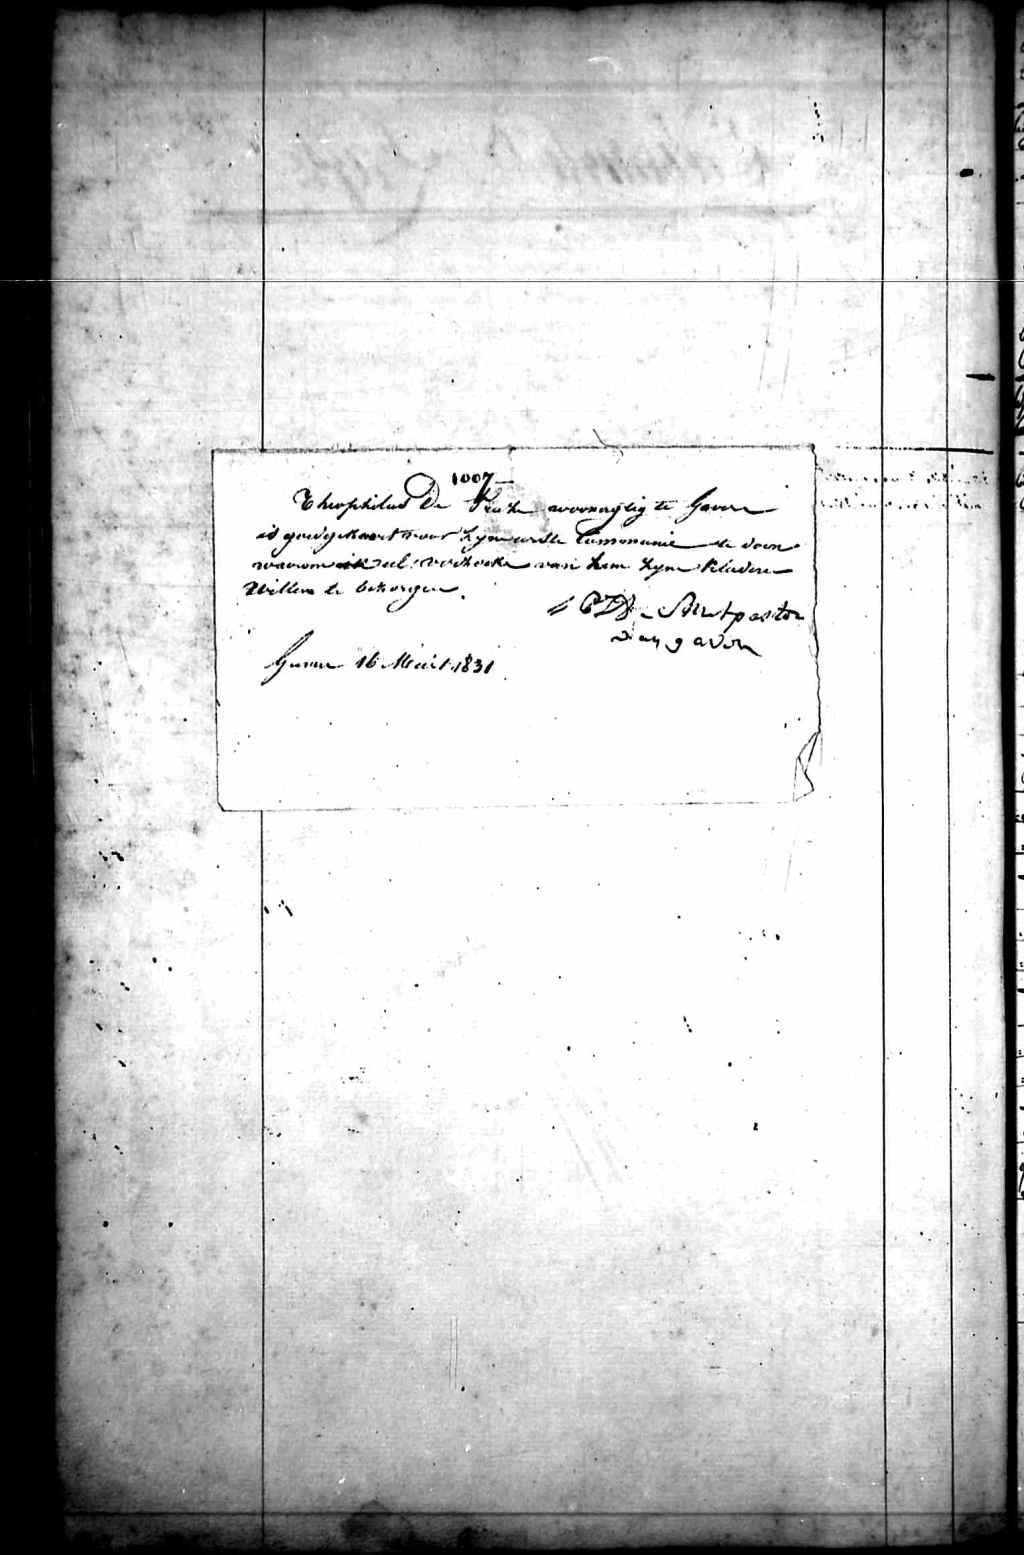 1007
Theophilus De woonagtig te Gavere
is goedgekeurt voor zyn eerste Communie te doen
waerom ik UEd. verzoeke van hem zyne kleederen
willen te bezorgen.
pastor
van gavere
Gavere 16 Meirt 1831